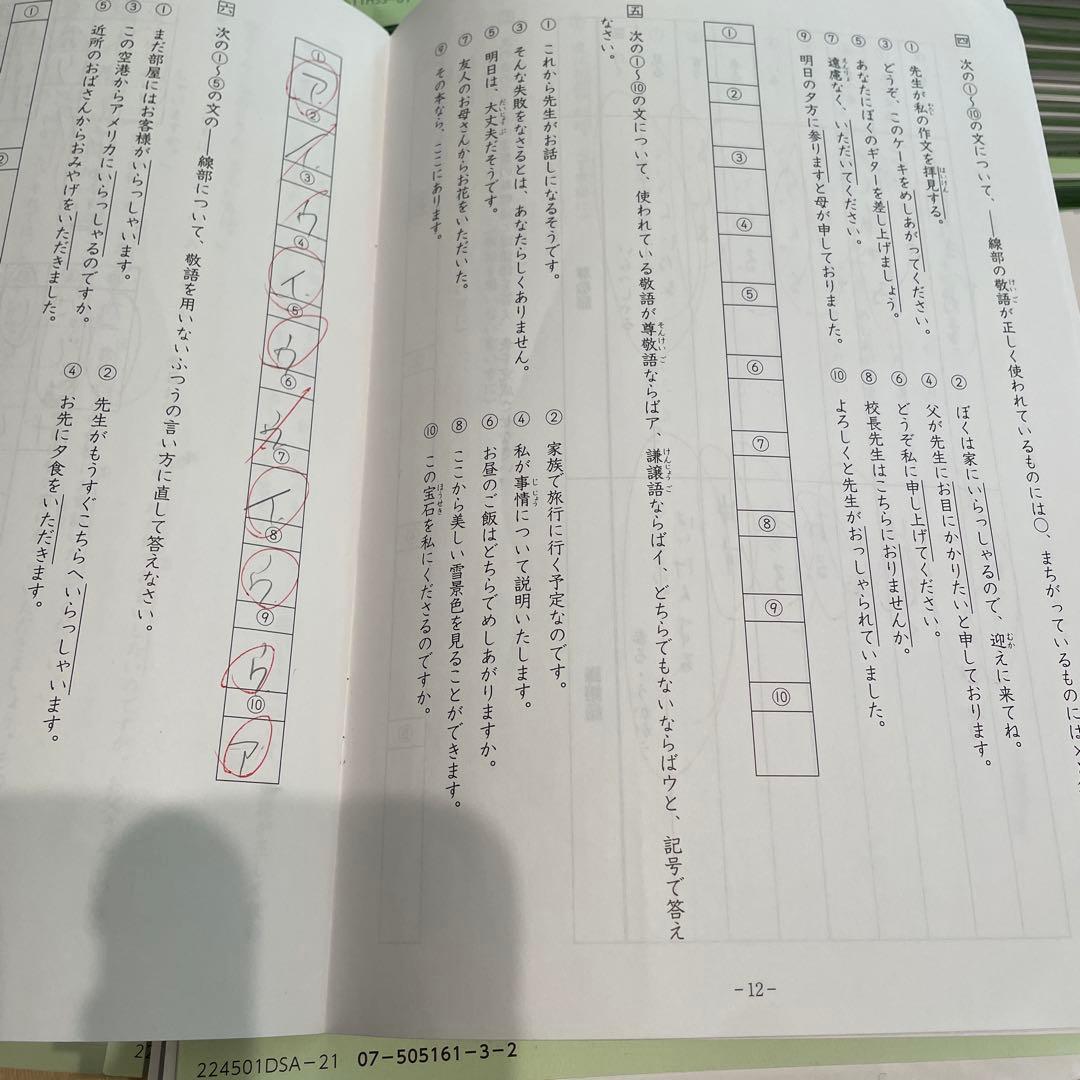 四 次の①〜⑩の文について、――線部の敬語が正しく使われているものには○、まちがっているものには×
① 先生が私の作文を拝見する。
② ぼくは家にいらっしゃるので、迎えに来てね。
③ どうぞ、このケーキをめしあがってください。
④ 父が先生にお目にかかりたいと申しております。
⑤ あなたにぼくのギターを差し上げましょう。
⑥ どうぞ私に申し上げてください。
⑦ 遠慮なく、いただいてください。
⑧ 校長先生はこちらにおりませんか。
⑨ 明日の夕方に参りますと母が申しておりました。
⑩ よろしくと先生がおっしゃられていました。
① ② ③ ④ ⑤ ⑥ ⑦ ⑧ ⑨ ⑩
五 次の①〜⑩の文について、使われている敬語が尊敬語ならばア、謙譲語ならばイ、どちらでもないならばウと、記号で答え
なさい。
① これから先生がお話しになるそうです。
② 家族で旅行に行く予定なのです。
③ そんな失敗をなさるとは、あなたらしくありません。
④ 私が事情について説明いたします。
⑤ 明日は、大丈夫だそうです。
⑥ お昼のご飯はどちらでめしあがりますか。
⑦ 友人のお母さんからお花をいただいた。
⑧ ここから美しい雪景色を見ることができます。
⑨ その本なら、ここにあります。
⑩ この宝石を私にくださるのですか。
① ア ② イ ③ ウ ④ イ ⑤ ウ ⑥ ⑦ イ ⑧ ウ ⑨ ウ ⑩ ア
六 次の①〜⑤の文の――線部について、敬語を用いないふつうの言い方に直して答えなさい。
① まだ部屋にはお客様がいらっしゃいます。
② 先生がもうすぐこちらへいらっしゃいます。
③ この空港からアメリカにいらっしゃるのですか。
④ お先に夕食をいただきます。
⑤ 近所のおばさんからおみやげをいただきました。
① ②
-12-
224501DSA-21 07-505161-3-2